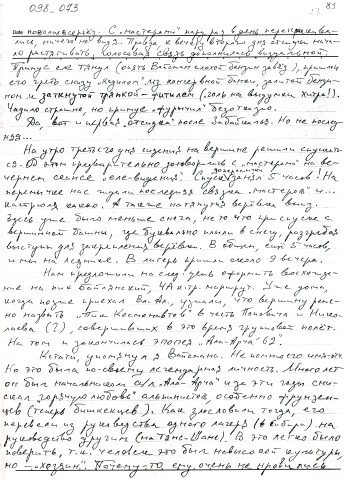 098_093
89
наю невольную сверку. С „мастерами" пару раз в день перекрикива-
лись, ничего не видя. Правда, к вечеру второго дня отсидки нача-
ло растягивать, голосовая связь дополнилась визуальной.
Примус еле тянул (опять Ватаман сожжет бензин завёз), пришлось
его греть снизу „кадилом" из консервной банки, залитой бензи-
ном и заткнутой тряпкой-фитилем (голь на выдумки хитра!).
Чадило страшно, но примус „фурычил" безотказно.
Да, вот и первая „отсидка" после Забайкалья. Но не послед-
няя...
На утро третьего дня сидения на вершине решили спускать-
ся. Об этом предварительно договорились с „мастерами" на ве-
чернем сеансе „еле-видения". Спуск занял 5 часов! На
перемычке нас ждали последняя связка „мастеров" и...
кастрюля какао. А также натянутая верёвка вниз.
Здесь уже было меньше снега, не то что при спуске с
вершинной башни, где буквально плыли в снегу, разгребая
выступы для закрепления верёвки. В общем, ещё 5 часов,
и мы на леднике. В лагерь пришли около 9 вечера.
Нам предложили на след. день оформить восхожде-
ние на пикБотвянский, 4А к.тр. маршрут. Уже дома,
когда позже приехал Вл. Ал., узнали, что вершину реше-
но назвать „Пик Космонавтов" в честь Поповича и Нико-
лаева (?), совершивших в это время групповой полёт.
На том и закончилась эпопея „Ала-Арча '62".
Кстати, упомянул я Ватамана. Не помню его имя-отч.
Но это была по-своему легендарная личность. Много лет
он был начальником а/л „Ала-Арча" и за эти годы сни-
скал „горячую любовь" альпинистов, особенно фрунзен-
цев (теперь бишкекцев). Как злословили тогда, его
перевели из руководства одного лагеря (в Сибири) на
руководство другим (на Тянь-Шане). В это легко было
поверить, т.к. человек это был невысокой культуры,
но – „хозяин". Почему-то ему очень не нравились